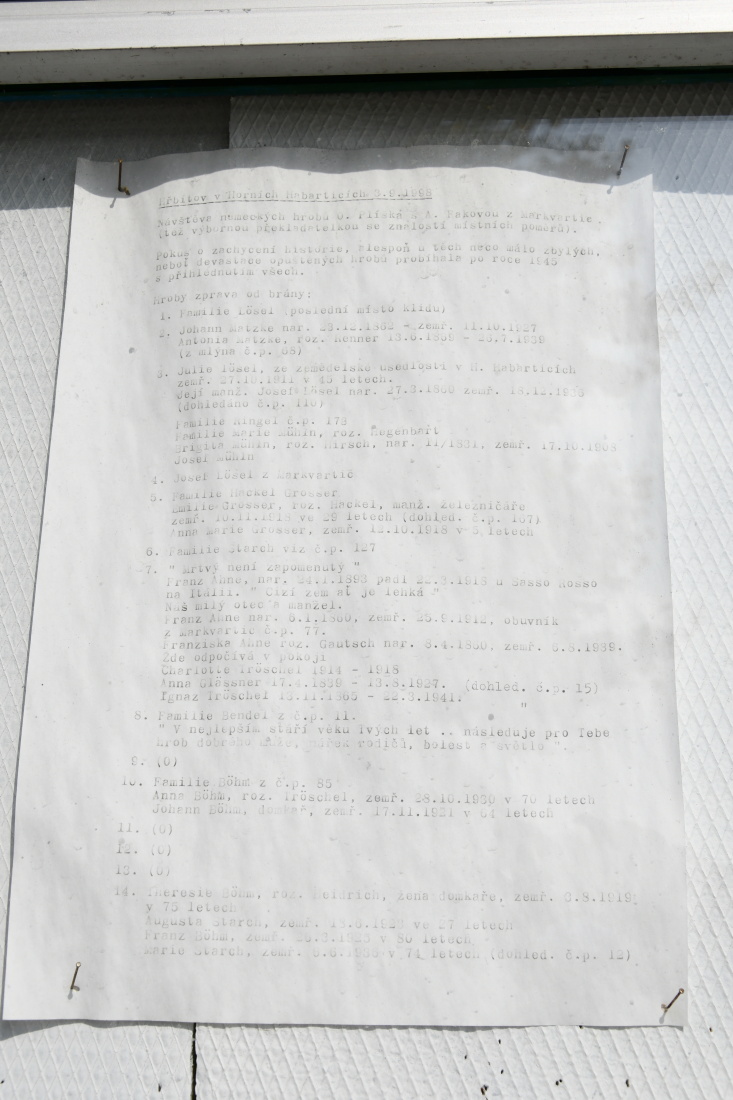 Hřbitov v Horních Habarticích 3.9.1998
Návštěva německých hrobů J. Říšká & A. Jakovou z Markvartic
(též výbornou překladatelkou se znalostí místních poměrů).
Pokus o zachycení historie, alespoň u těch něco málo zbylých,
neboť devastace opuštěných hrobů probíhala po roce 1945
s přihlédnutím všech.
Hroby zprava od brány:
1. Familie Lösel (poslední místo klidu)
2. Johann Matzke nar. 23.12.1862 - zemř. 11.10.1927
Antonia Matzke, roz. Renner 13.6.1859 - 23.7.1939
(z mlýna č.p. 68)
3. Julie Lösel, ze zemědělské usedlosti v H. Habarticích
zemř. 27.10.1911 v 45 letech.
Její manž. Josef Lösel nar. 27.3.1860 zemř. 18.12.1935
(dohledáno č.p. 110)
Familie Ringel č.p. 178
Familie Marie Mühln, roz. Regenhart
Brigita Mühln, roz. Hirsch, nar. 11/1831, zemř. 17.10.1908
Josef Mühln
4. Josef Lösel z Markvartic
5. Familie Hackel Grosser
Emilie Grosser, roz. Hackel, manž. železničáře
zemř. 16.11.1918 ve 29 letech (dohled. č.p. 167)
Anna Marie Grosser, zemř. 12.10.1918 v 5 letech
6. Familie Starch viz č.p. 127
7. " Mrtvý není zapomenutý "
Franz Ahne, nar. 24.1.1893 padl 22.3.1918 u Sasso Rosso
na Itálii. " Cizí zem ať je lehká "
Náš milý otec a manžel.
Franz Ahne nar. 6.1.1860, zemř. 25.9.1912, obuvník
z Markvartic č.p. 77.
Franziska Ahne roz. Gautsch nar. 8.4.1860, zemř. 6.8.1939.
Zde odpočívá v pokoji
Charlotte Tröschel 1914 - 1918
Anna Glässner 17.4.1839 - 13.8.1927. (dohled. č.p. 15)
Ignaz Tröschel 13.11.1865 - 22.3.1941. "
8. Familie Bendel z č.p. 11.
" V nejlepším stáří věku Tvých let .. následuje pro Tebe
hrob dobrého muže, rodičů, bolest a světlo ".
9. (0)
10. Familie Böhm z č.p. 85
Anna Böhm, roz. Tröschel, zemř. 28.10.1930 v 70 letech
Johann Böhm, domkař, zemř. 17.11.1921 v 64 letech
11. (0)
12. (0)
13. (0)
14. Theresie Böhm, roz. Heidrich, žena domkaře, zemř. 3.8.1919
v 75 letech
Augusta Starch, zemř. 13.6.1923 ve 27 letech
Franz Böhm, zemř. 26.3.1925 v 80 letech
Marie Starch, zemř. 6.6.1938 v 74 letech (dohled. č.p. 12)